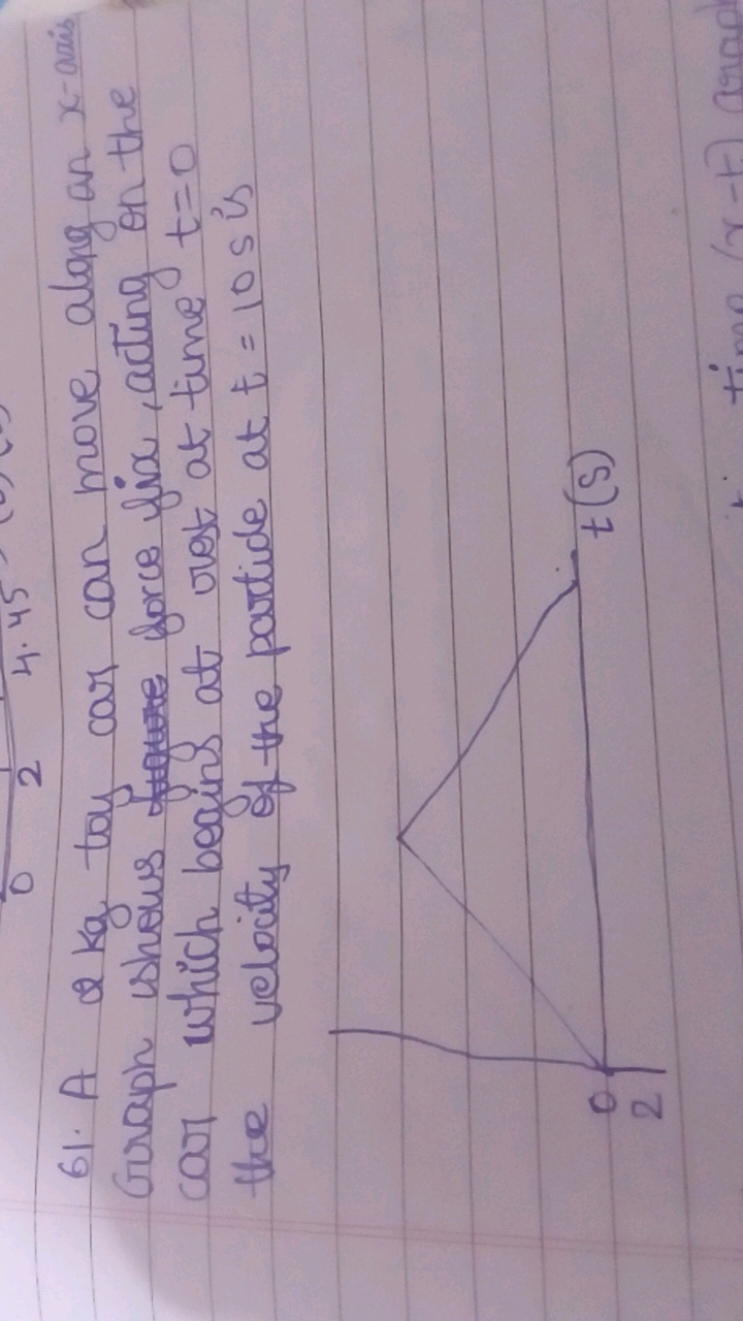 0 2 4.45
61. A 2 kg toy car can move along an x-axis
Graph shows force fix, acting on the
car which begins at rest at time t=0
the velocity of the particle at t = 10 s is
0
2
t(s)
time (x-t) graph